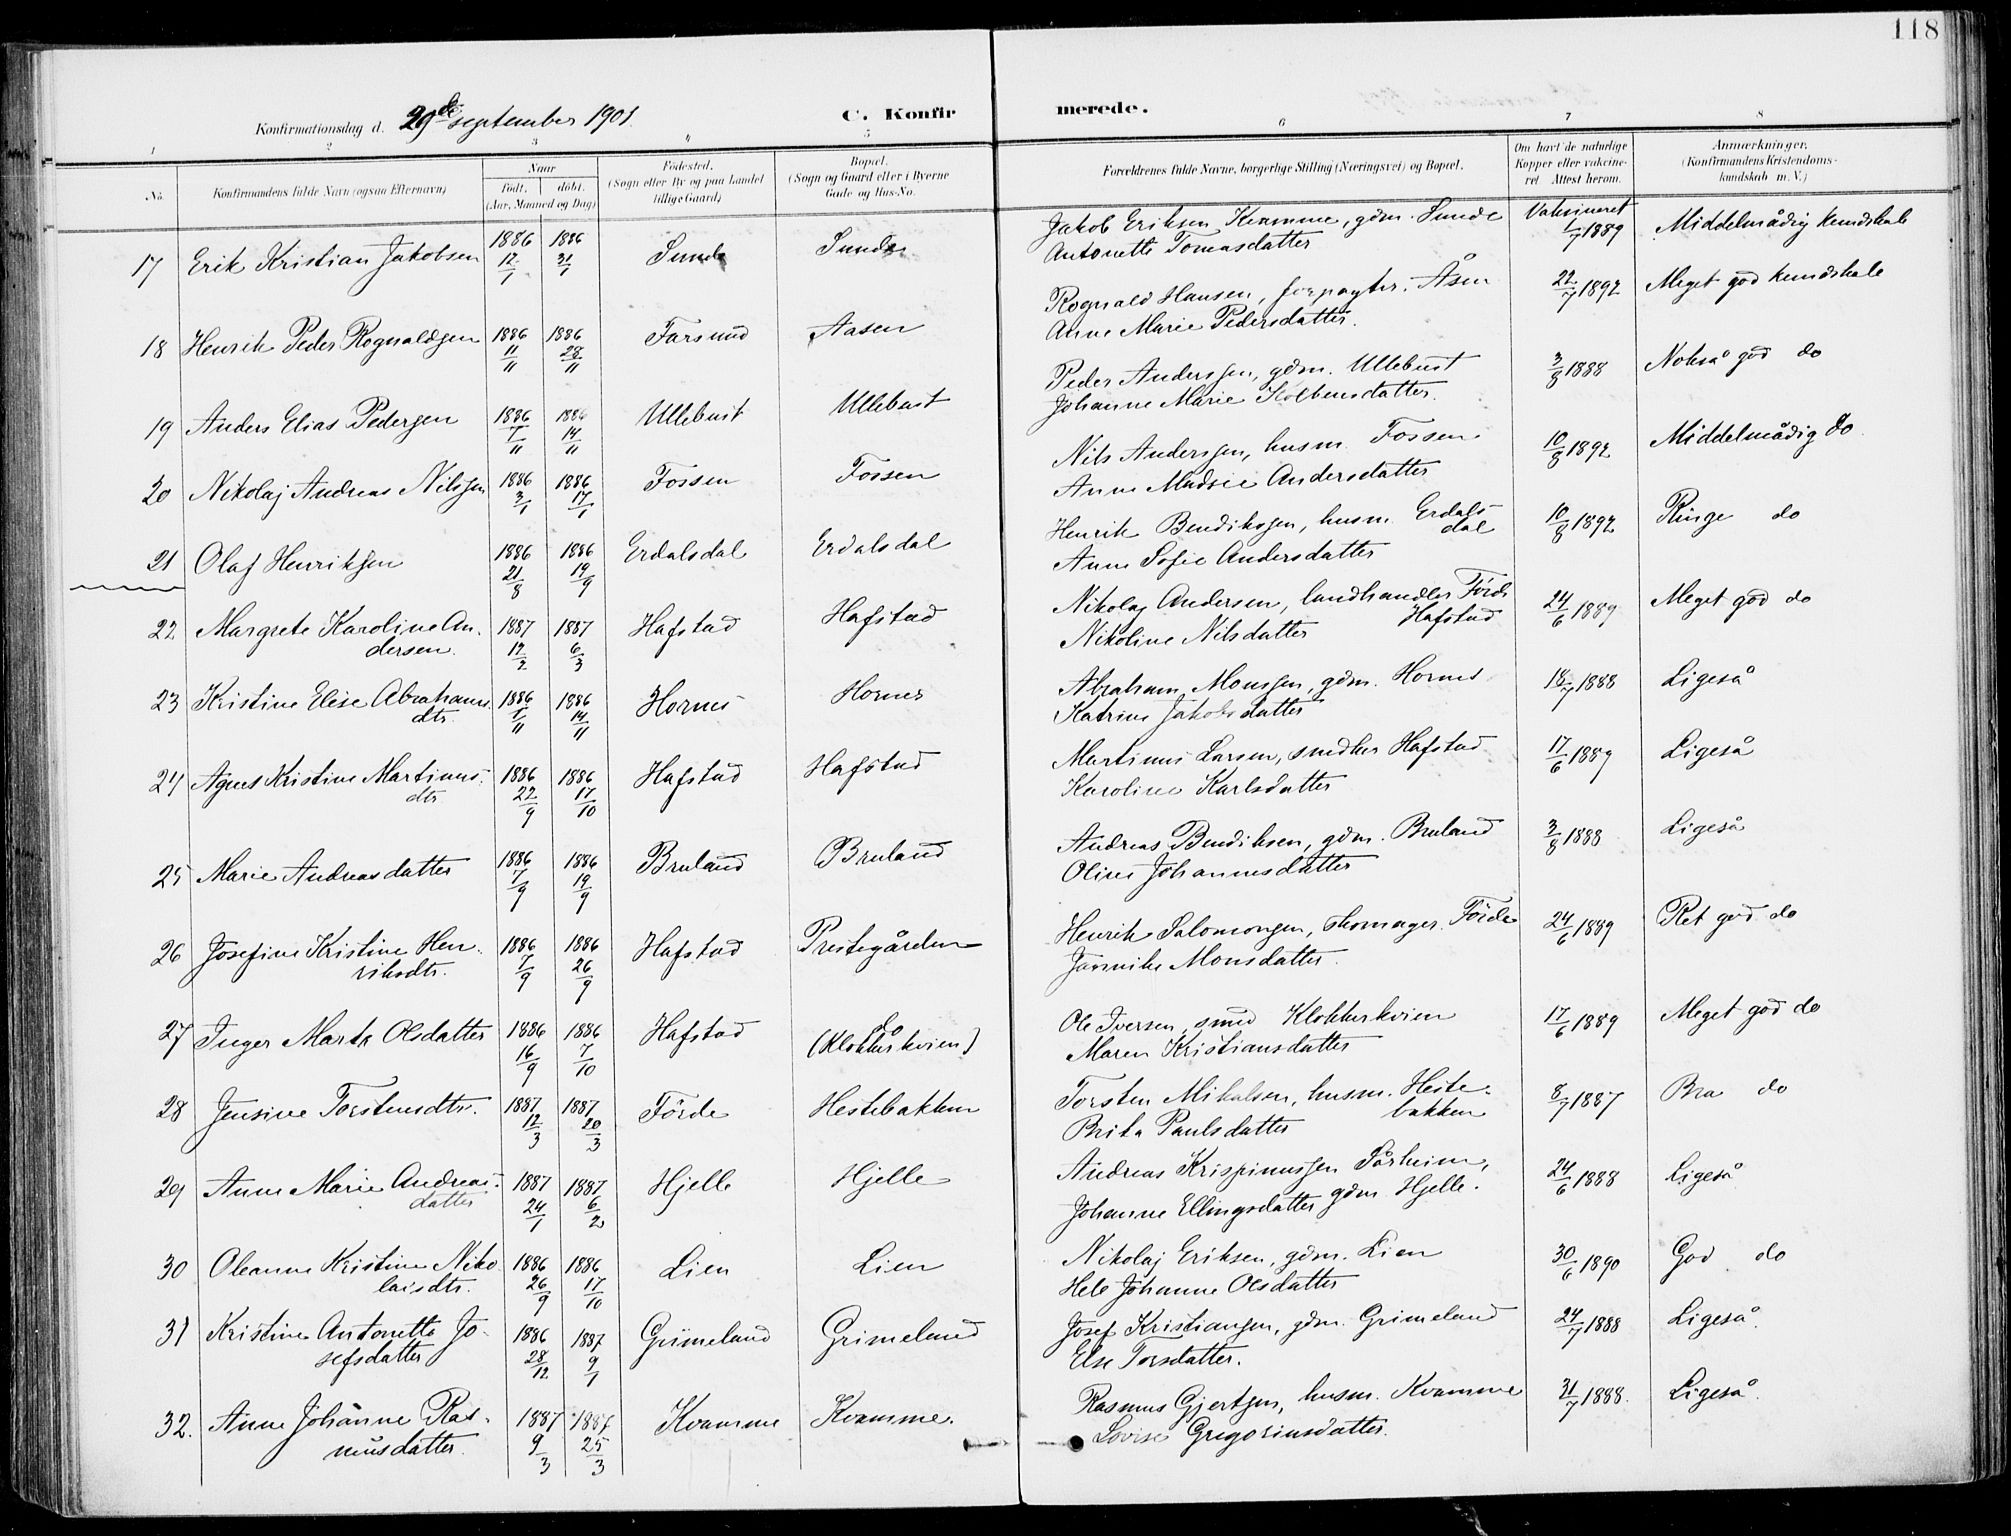 118
Konfirmationsdag d. 29de september 1901.
C. Konfirmerede.
1 2 3 4 5 6 7 8
No.
Konfirmandens fulde Navn (ogsaa Efternavn)
Naar
født. døbt.
(Aar, Maaned og Dag)
Fødested.
(Sogn eller By og paa Landet
tillige Gaard)
Bopæl.
(Sogn og Gaard eller i Byerne
Gade og Hus-No.
Forældrenes fulde Navne, borgerlige Stilling (Næringsvei) og Bopæl.
Om havt de naturlige
Kopper eller vakcine-
ret. Attest herom.
Anmærkninger.
(Konfirmandens Kristendoms-
kundskab m. V.)
17 Erik Kristian Jakobsen 1886 12/1 1886 31/1 Sunde Sunde Jakob Eriksen Kvamme, gdm. Sunde Vaksineret 1/7 1889 Middelmådig kundskab
Antonette Tomasdatter
18 Henrik Peder Rognaldsen 1886 11/11 1886 28/11 Farsund Aasen Rognald Hansen, forpagter. Åsen 22/7 1892 Meget god kundskab
Anne Marie Pedersdatter.
19 Anders Elias Pedersen 1886 7/11 1886 14/11 Ullebust Ullebust Peder Anderssen, gdm. Ullebust 3/8 1888 Nokså god do
Johanne Marie Kolbensdatter.
20 Nikolaj Andreas Nilssen 1886 3/1 1886 17/1 Fossen Fossen Nils Anderssen, husm. Fossen 10/8 1892 Middelmådig do
Anne Madsie Andersdatter
21 Olaf Henriksen 1886 21/8 1886 19/9 Erdalsdal Erdalsdal Henrik Bendikssen, husm. Erdals- 10/8 1892 Ringe do
dal
Anne Sofie Andersdatter
22 Margrete Karoline An- 1887 12/2 1887 6/3 Hafstad Hafstad Nikolaj Andersen, landhandler Förde 24/6 1889 Meget god do
dersen. Nikoline Nilsdatter Hafstad
23 Kristine Elise Abrahams 1886 7/11 1886 14/11 Hornes Hornes Abraham Monssen, gdm. Hornes 18/7 1888 Ligeså
dtr. Katrine Jakobsdatter
24 Agnes Kristine Martinus- 1886 22/9 1886 17/10 Hafstad Hafstad Martinus Larsen, snedker Hafstad 17/6 1889 Ligeså
dtr Karoline Karlsdatter
25 Marie Andreasdatter 1886 7/9 1886 19/9 Bruland Bruland Andreas Bendiksen, gdm. Bruland 3/8 1888 Ligeså
Oline Johannesdatter
26 Josefine Kristine Hen- 1886 7/9 1886 26/9 Hafstad Prestegården Henrik Salomonsen, skomager. Förde 24/6 1889 Ret god do
riksdtr. Jannike Monsdatter.
27 Inger Marta Olsdatter 1886 16/9 1886 7/10 Hafstad do (Klokkerkvien) Ole Iversen, smed Klokkerkvien 17/6 1889 Meget god do
Maren Kristiansdatter
28 Jensine Torstensdtr. 1887 12/3 1887 20/3 Förde Hestebakken Torsten Mikalsen, husm. Heste- 8/7 1887 Bra do
bakken
Brita Paulsdatter
29 Anne Marie Andreas- 1887 24/1 1887 6/2 Hjelle Hjelle Andreas Krispinussen Sårheim, 24/6 1888 Ligeså
datter Johanne Ellingsdatter gdm. Hjelle.
30 Oleanne Kristine Niko 1886 26/9 1886 17/10 Lien Lien Nikolaj Eriksen, gdm. Lien 30/6 1890 God do
laisdtr. Hele Johanne Olsdatter
31 Kristine Antonette Jo- 1886 28/12 1887 9/1 Grimeland Grimeland Josef Kristiansen, gdm. Grimeland 24/7 1888 Ligeså.
sefsdatter Else Torsdatter.
32. Anne Johanne Ras- 1887 9/3 1887 25/3 Kvamme Kvamme. Rasmus Gjertsen, husm. Kvamme 21/7 1888. Ligeså.
musdatter. Lovise Gregoriusdatter.